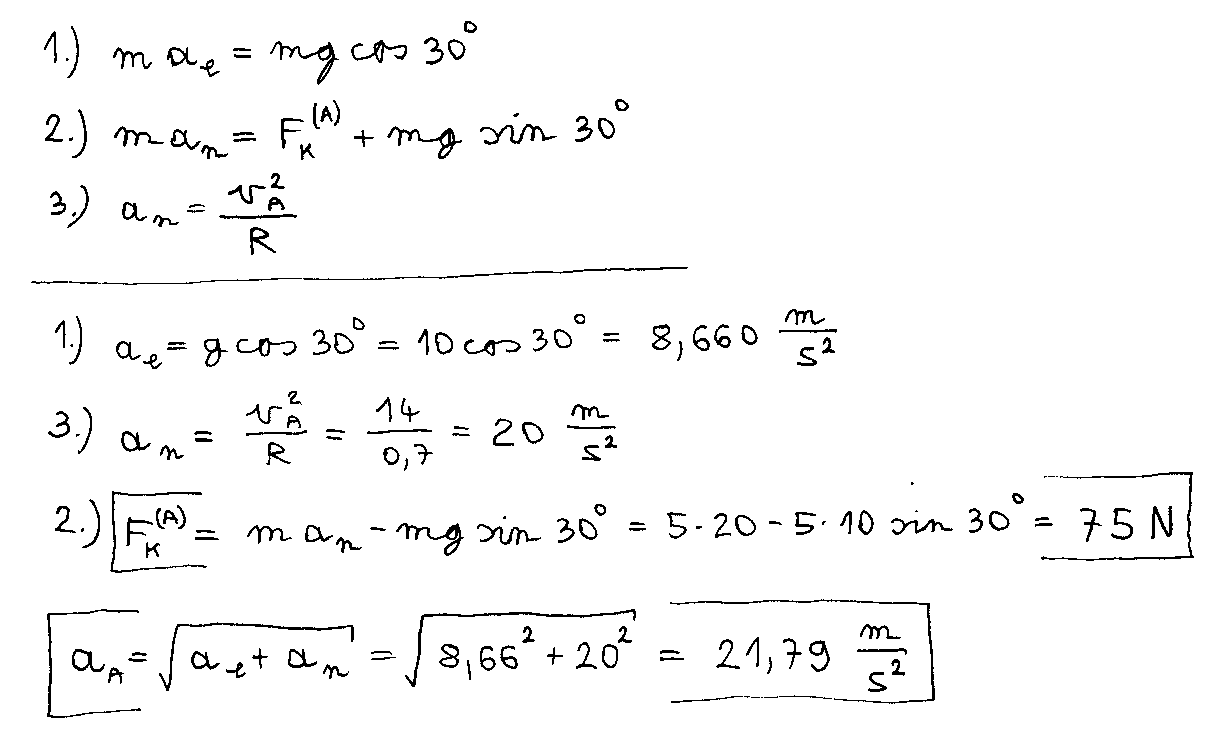 1.) m a_e = mg cos 30°
2.) m a_n = F_K^(A) + mg sin 30°
3.) a_n = v_A^2 / R
1.) a_e = g cos 30° = 10 cos 30° = 8,660 m/s^2
3.) a_n = v_A^2 / R = 14 / 0,7 = 20 m/s^2
2.) F_K^(A) = m a_n - mg sin 30° = 5·20 - 5·10 sin 30° = 75 N
a_A = √(a_e + a_n) = √(8,66^2 + 20^2) = 21,79 m/s^2